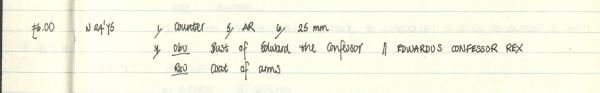 £6.00 N 24'75 1, Counter 5, AR 6, 25 mm
7, Obv Bust of Edward the Confessor // EDWARDUS CONFESSOR REX
Rev Coat of arms